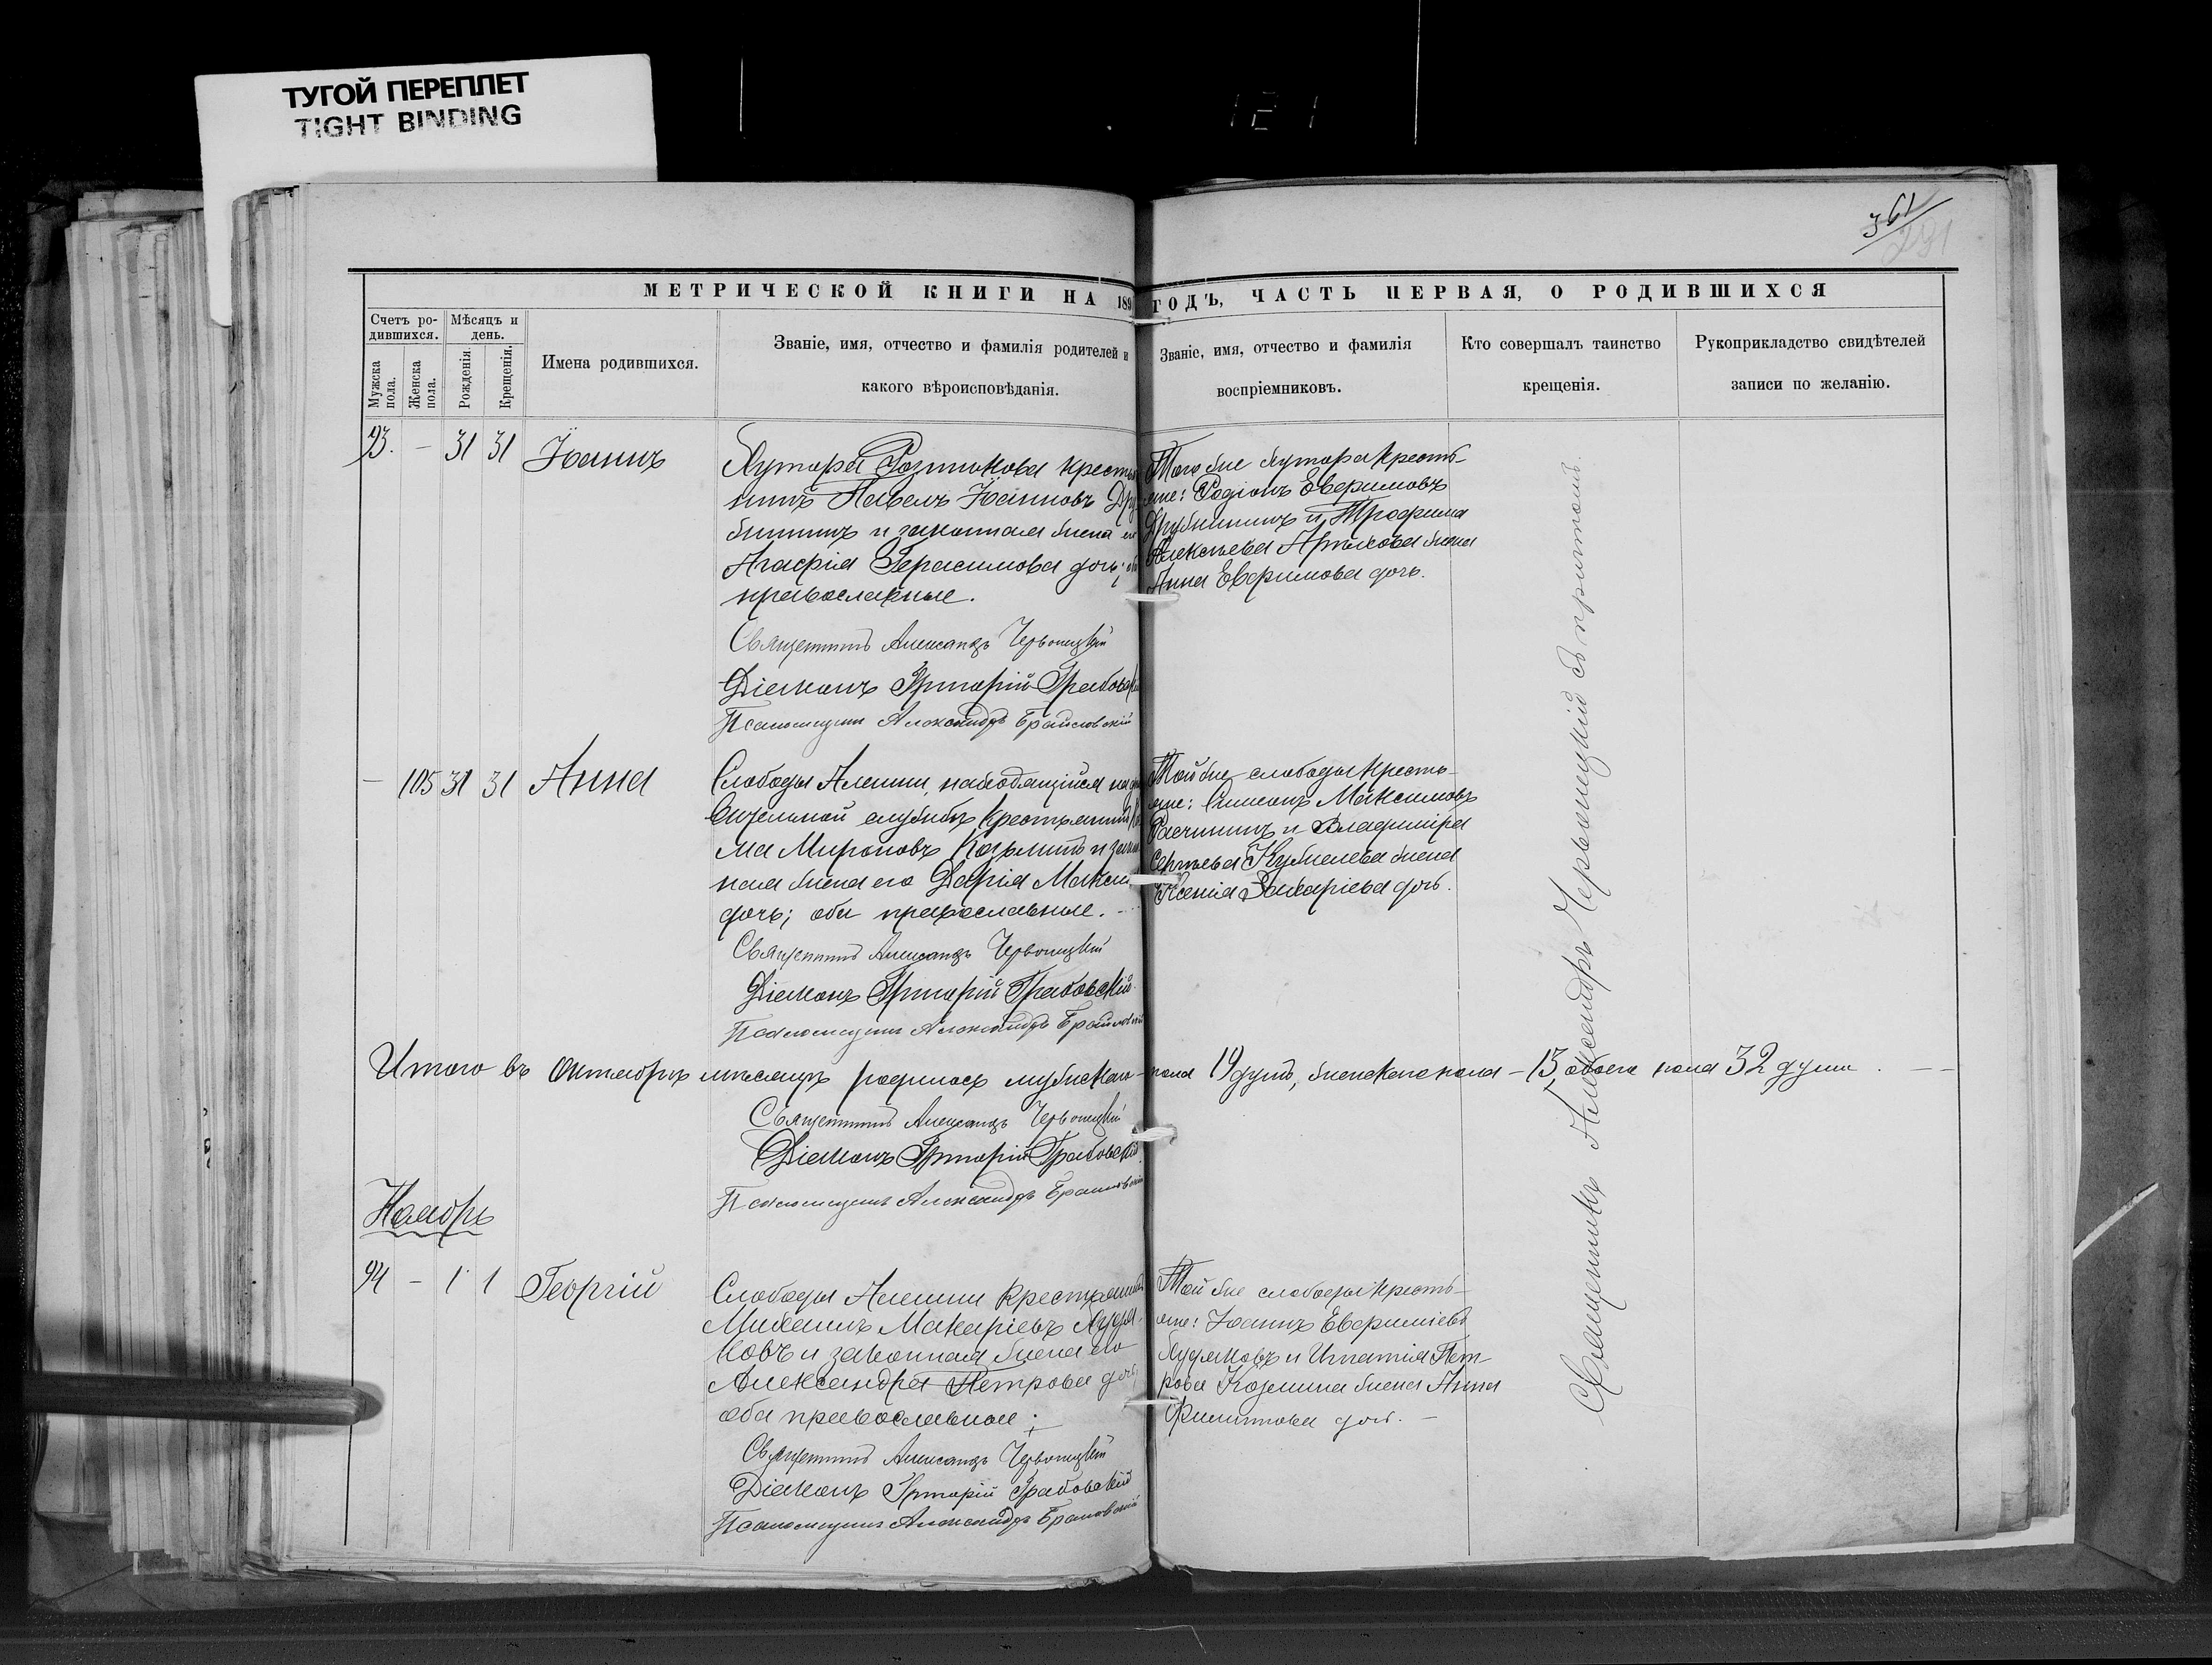 ТУГОЙ ПЕРЕПЛЕТ
TIGHT BINDING
121
361
291
МЕТРИЧЕСКОЙ КНИГИ НА 189 ГОДЪ, ЧАСТЬ ПЕРВАЯ, О РОДИВШИХСЯ
Счетъ ро-
дившихся.
Мѣсяцъ и
день.
Мужска
пола.
Женска
пола.
Рожденія.
Крещенія.
Имена родившихся.
Званіе, имя, отчество и фамилія родителей и
какого вѣроисповѣданія.
Званіе, имя, отчество и фамилія
воспріемниковъ.
Кто совершалъ таинство
крещенія.
Рукоприкладство свидѣтелей
записи по желанію.
93. - 31 31 Іоаннъ
Хутора кресть
нинъ Павелъ Іоанновъ
и законная жена его
Агафія Герасимова дочь;
православные.
Священникъ Александръ Червонецкій
Діаконъ Григорій Грабовскій
Псаломщикъ Александръ
Того же хутора кресть-
яне: Родіонъ Евфимовъ
и Трофима
Алексѣева жена
Анна Евфимова дочь.
- 105 31 31 Анна
Слободы Алешни, находящійся на
службѣ крестьянинъ
ма Мироновъ и закон
ная жена его Дарія Макси
дочь; оба православные.
Священникъ Александръ Червонецкій
Діаконъ Григорій Грабовскій
Псаломщикъ Александръ
Той же слободы кресть-
яне: Симеонъ Максимовъ
и Владиміра
Сергѣева жена
Ксенія Захаріева дочь.
Итого въ Октябрѣ мѣсяцѣ родилось мужскаго пола 19 душъ, женскаго пола - 13, обоего пола 32 души.
Священникъ Александръ Червонецкій
Діаконъ Григорій Грабовскій
Псаломщикъ Александръ
Ноябрь
94 - 1 1 Георгій
Слободы Алешни крестьянинъ
Михаилъ Макаріевъ Худя
ковъ и законная жена его
Александра Петрова дочь;
оба православные;
Священникъ Александръ Червонецкій
Діаконъ Григорій Грабовскій
Псаломщикъ Александръ
Той же слободы кресть-
яне: Іоаннъ Евфиміевъ
Худяковъ и Игнатія Пет-
рова Козьмина жена Анна
Филиппова дочь. -
Священникъ Александръ Червонецкій съ причтомъ.